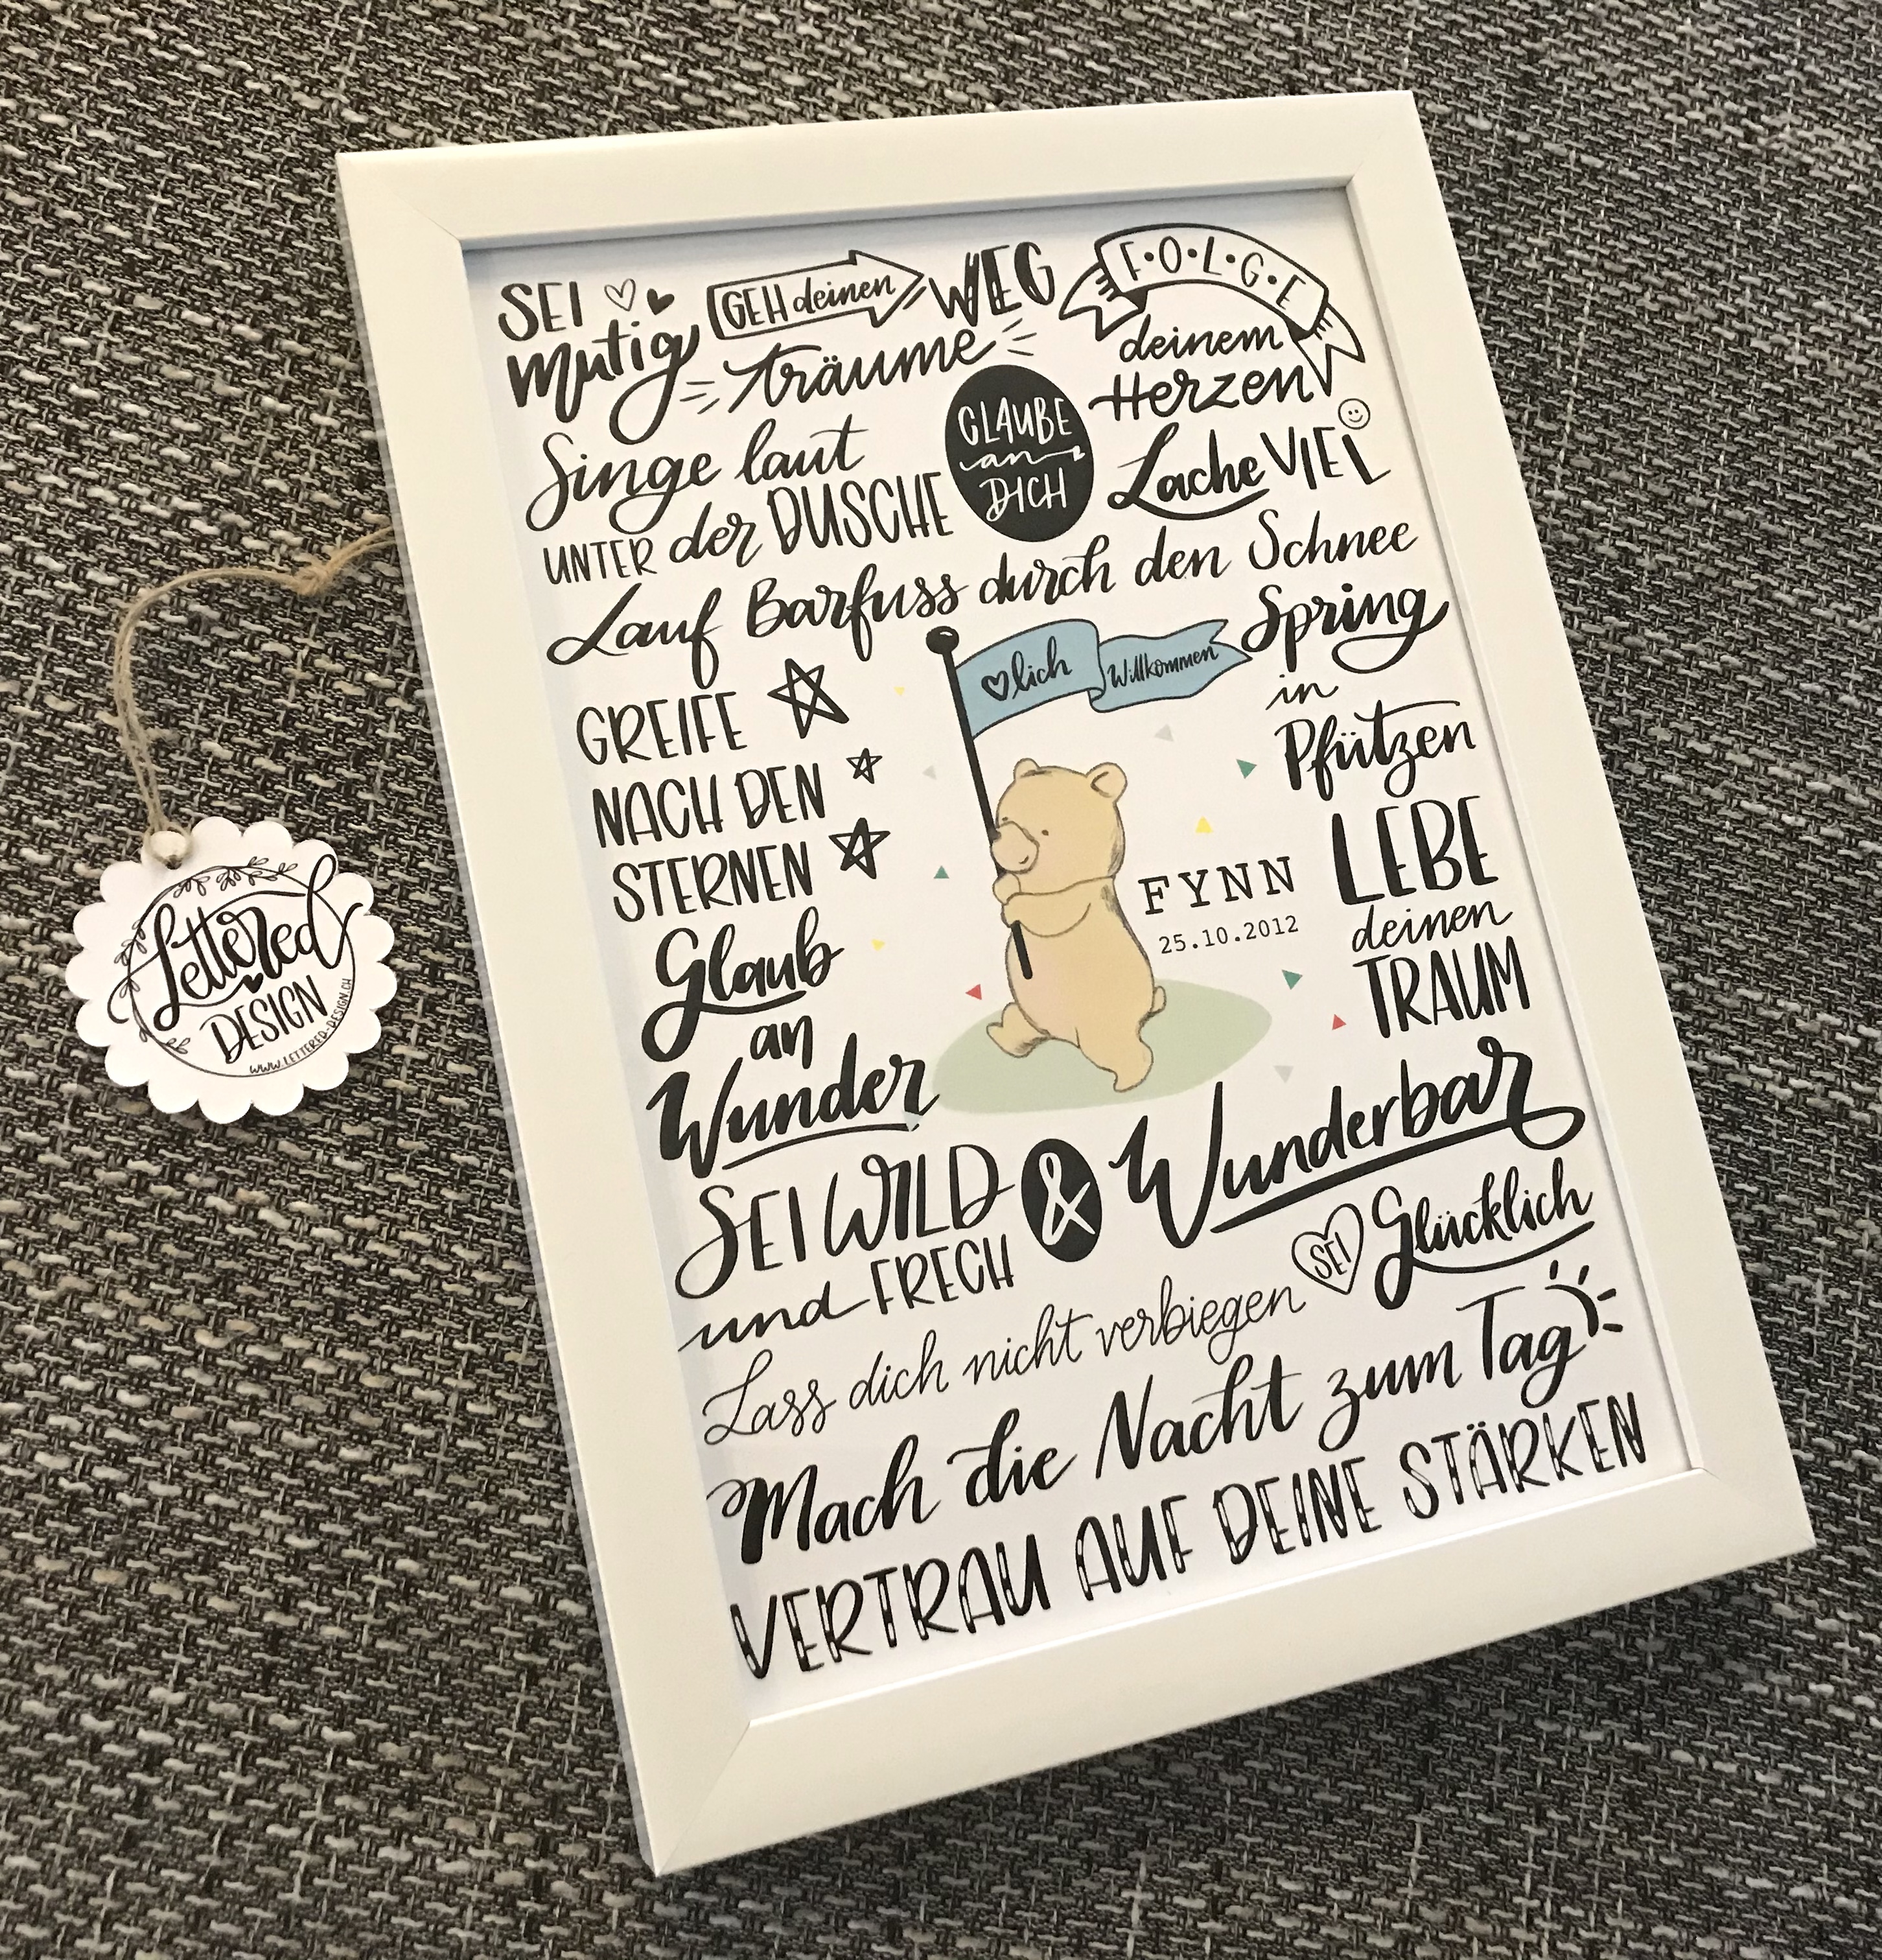 SEI
mutig
GEH deinen WEG
träume
F·O·L·G·E
deinem
Herzen
Singe laut
UNTER der DUSCHE
GLAUBE
an
DICH
Lache VIEL
Lauf Barfuss durch den Schnee
♡lich Willkommen
Spring
in
Pfützen
GREIFE
NACH DEN
STERNEN
Glaub
an
Wunder
FYNN
25.10.2012
LEBE
deinen
TRAUM
SEI WILD & Wunderbar
und FRECH
SEI Glücklich
Lass dich nicht verbiegen
Mach die Nacht zum Tag
VERTRAU AUF DEINE STÄRKEN
Lettered
DESIGN
WWW.LETTERED-DESIGN.CH